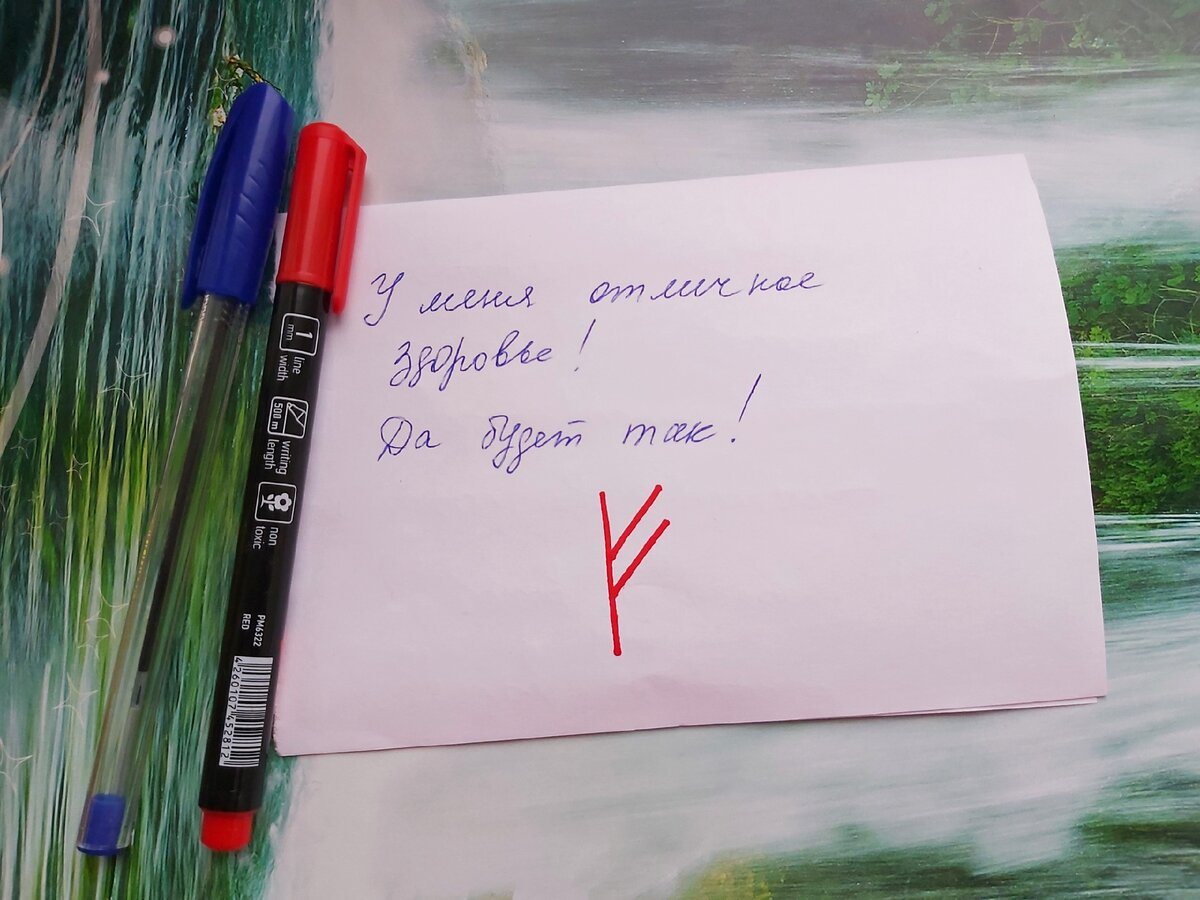 У меня отличное
здоровье!
Да будет так!
ᚠ
1
mm
line
width
500 m
writing
length
non
toxic
PM6322
RED
4260107452812